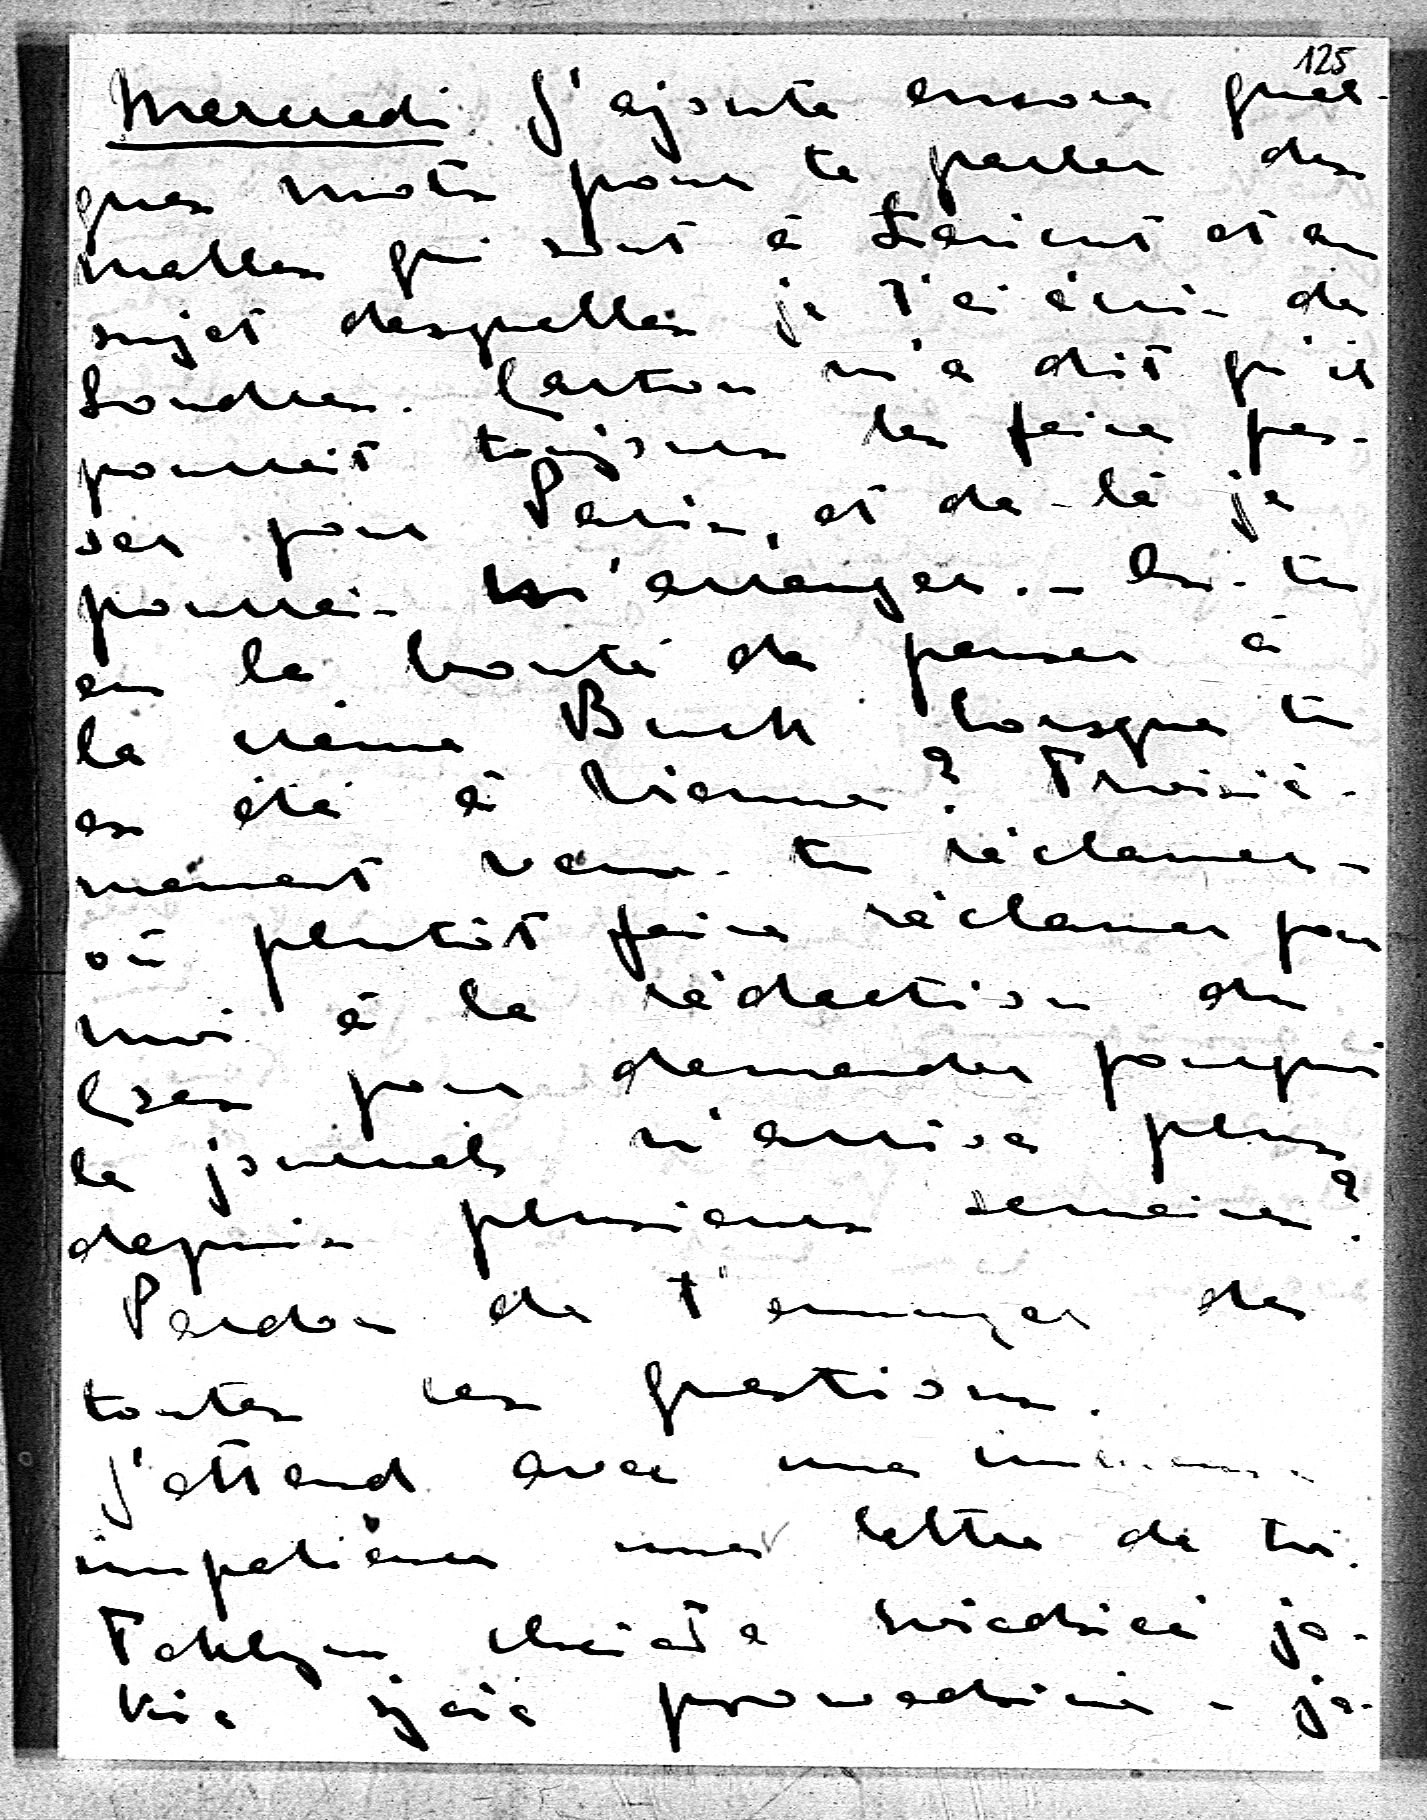 125
Mercredi J'ajoute encore quel-
ques mots pour te parler des
malles qui sont à Lorient et au
sujet desquelles je t'ai écris de
Londres. Gaston m'a dit qu'il
pourrait toujours les faire pas-
ser pour Paris, et de-là je
pourrais m'arranger. - As-tu
eu la bonté de penser à
la crème Buck lorsque tu
as été à Vienne? Troisiè-
mement veux-tu réclamer -
où plutôt faire réclamer pour
moi à la rédaction du
Czas pour demander pourquoi
le journal n'arrive plus
depuis plusieurs semaines?
Pardon de t'ennuyer de
toutes ces questions.
J'attend avec une immense
impatience une lettre de toi.
Takbym chciała wiedzieć ja-
kie życie prowadzicie - ja-